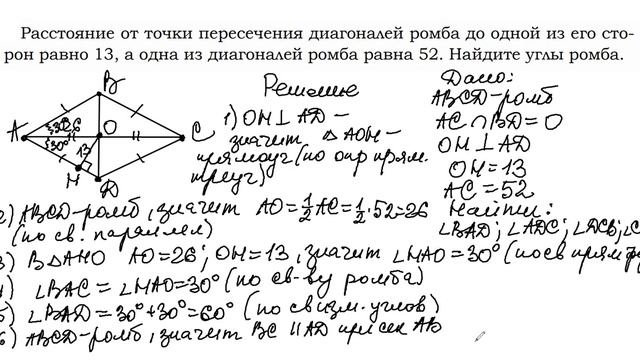 Расстояние от точки пересечения диагоналей ромба до одной из его сто-
рон равно 13, а одна из диагоналей ромба равна 52. Найдите углы ромба.
Решение
Дано:
ABCD-ромб
AC ∩ BD = O
OH ⊥ AD
OH = 13
AC = 52
Найти:
∠BAD; ∠ADC;
B
A
30°
26
30°
O
C
13
H
D
1) OH ⊥ AD –
значит △AOH –
прямоуг (по опр прям.
треуг)
2) ABCD-ромб, значит AO = ½AC = ½·52 = 26
(по св. параллел)
3) В △AHO AO = 26; OH = 13, значит ∠HAO = 30° (по св прям
) ∠BAC = ∠HAO = 30° (по св-ву ромба)
5) ∠BAD = 30° + 30° = 60° (по св изм. углов)
6) ABCD-ромб, значит BC ∥ AD при сек AB